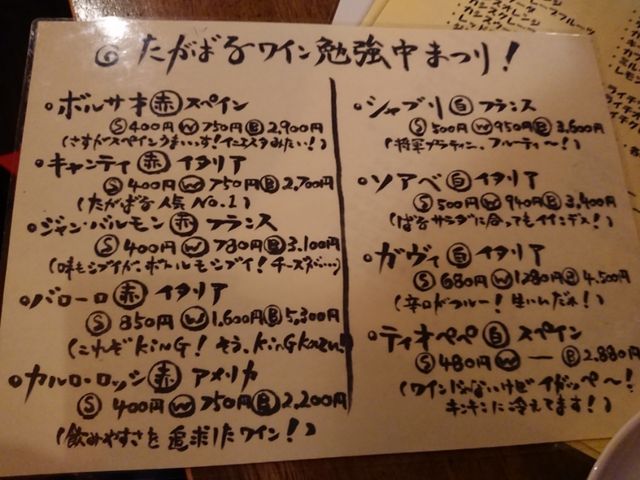 たがばるワイン勉強中まつり!
・ボルサオ 赤 スペイン
S 400円 W 750円 B 2,900円
(さすがスペインうまいっす!イニエスタみたい!)
・キャンティ 赤 イタリア
S 400円 W 750円 B 2,700円
(たがばる人気No.1)
・ジャン・バルモン 赤 フランス
S 400円 W 780円 B 3,100円
(味もシブイが、ボトルもシブイ!チーズが…)
・バローロ 赤 イタリア
S 850円 W 1,600円 B 5,300円
(これぞKinG! そう、KinGKazu!
・カルロ・ロッシ 赤 アメリカ
S 400円 W 750円 B 2,200円
(飲みやすさを追求したワイン!)
・シャブリ 白 フランス
S 500円 W 950円 B 3,600円
(将軍プラティニ、フルーティ〜!)
・ソアベ 白 イタリア
S 500円 W 940円 B 3,400円
(ばるサラダに合ってもイインデス!)
・ガヴィ 白 イタリア
S 680円 W 1280円 B 4,500円
(辛口がフルー!生いんだね!)
・ティオペペ 白 スペイン
S 480円 W — B 2,880円
(ワインじゃないけどイドッペ〜!
キンキンに冷えてます!)
カシスオレンジ